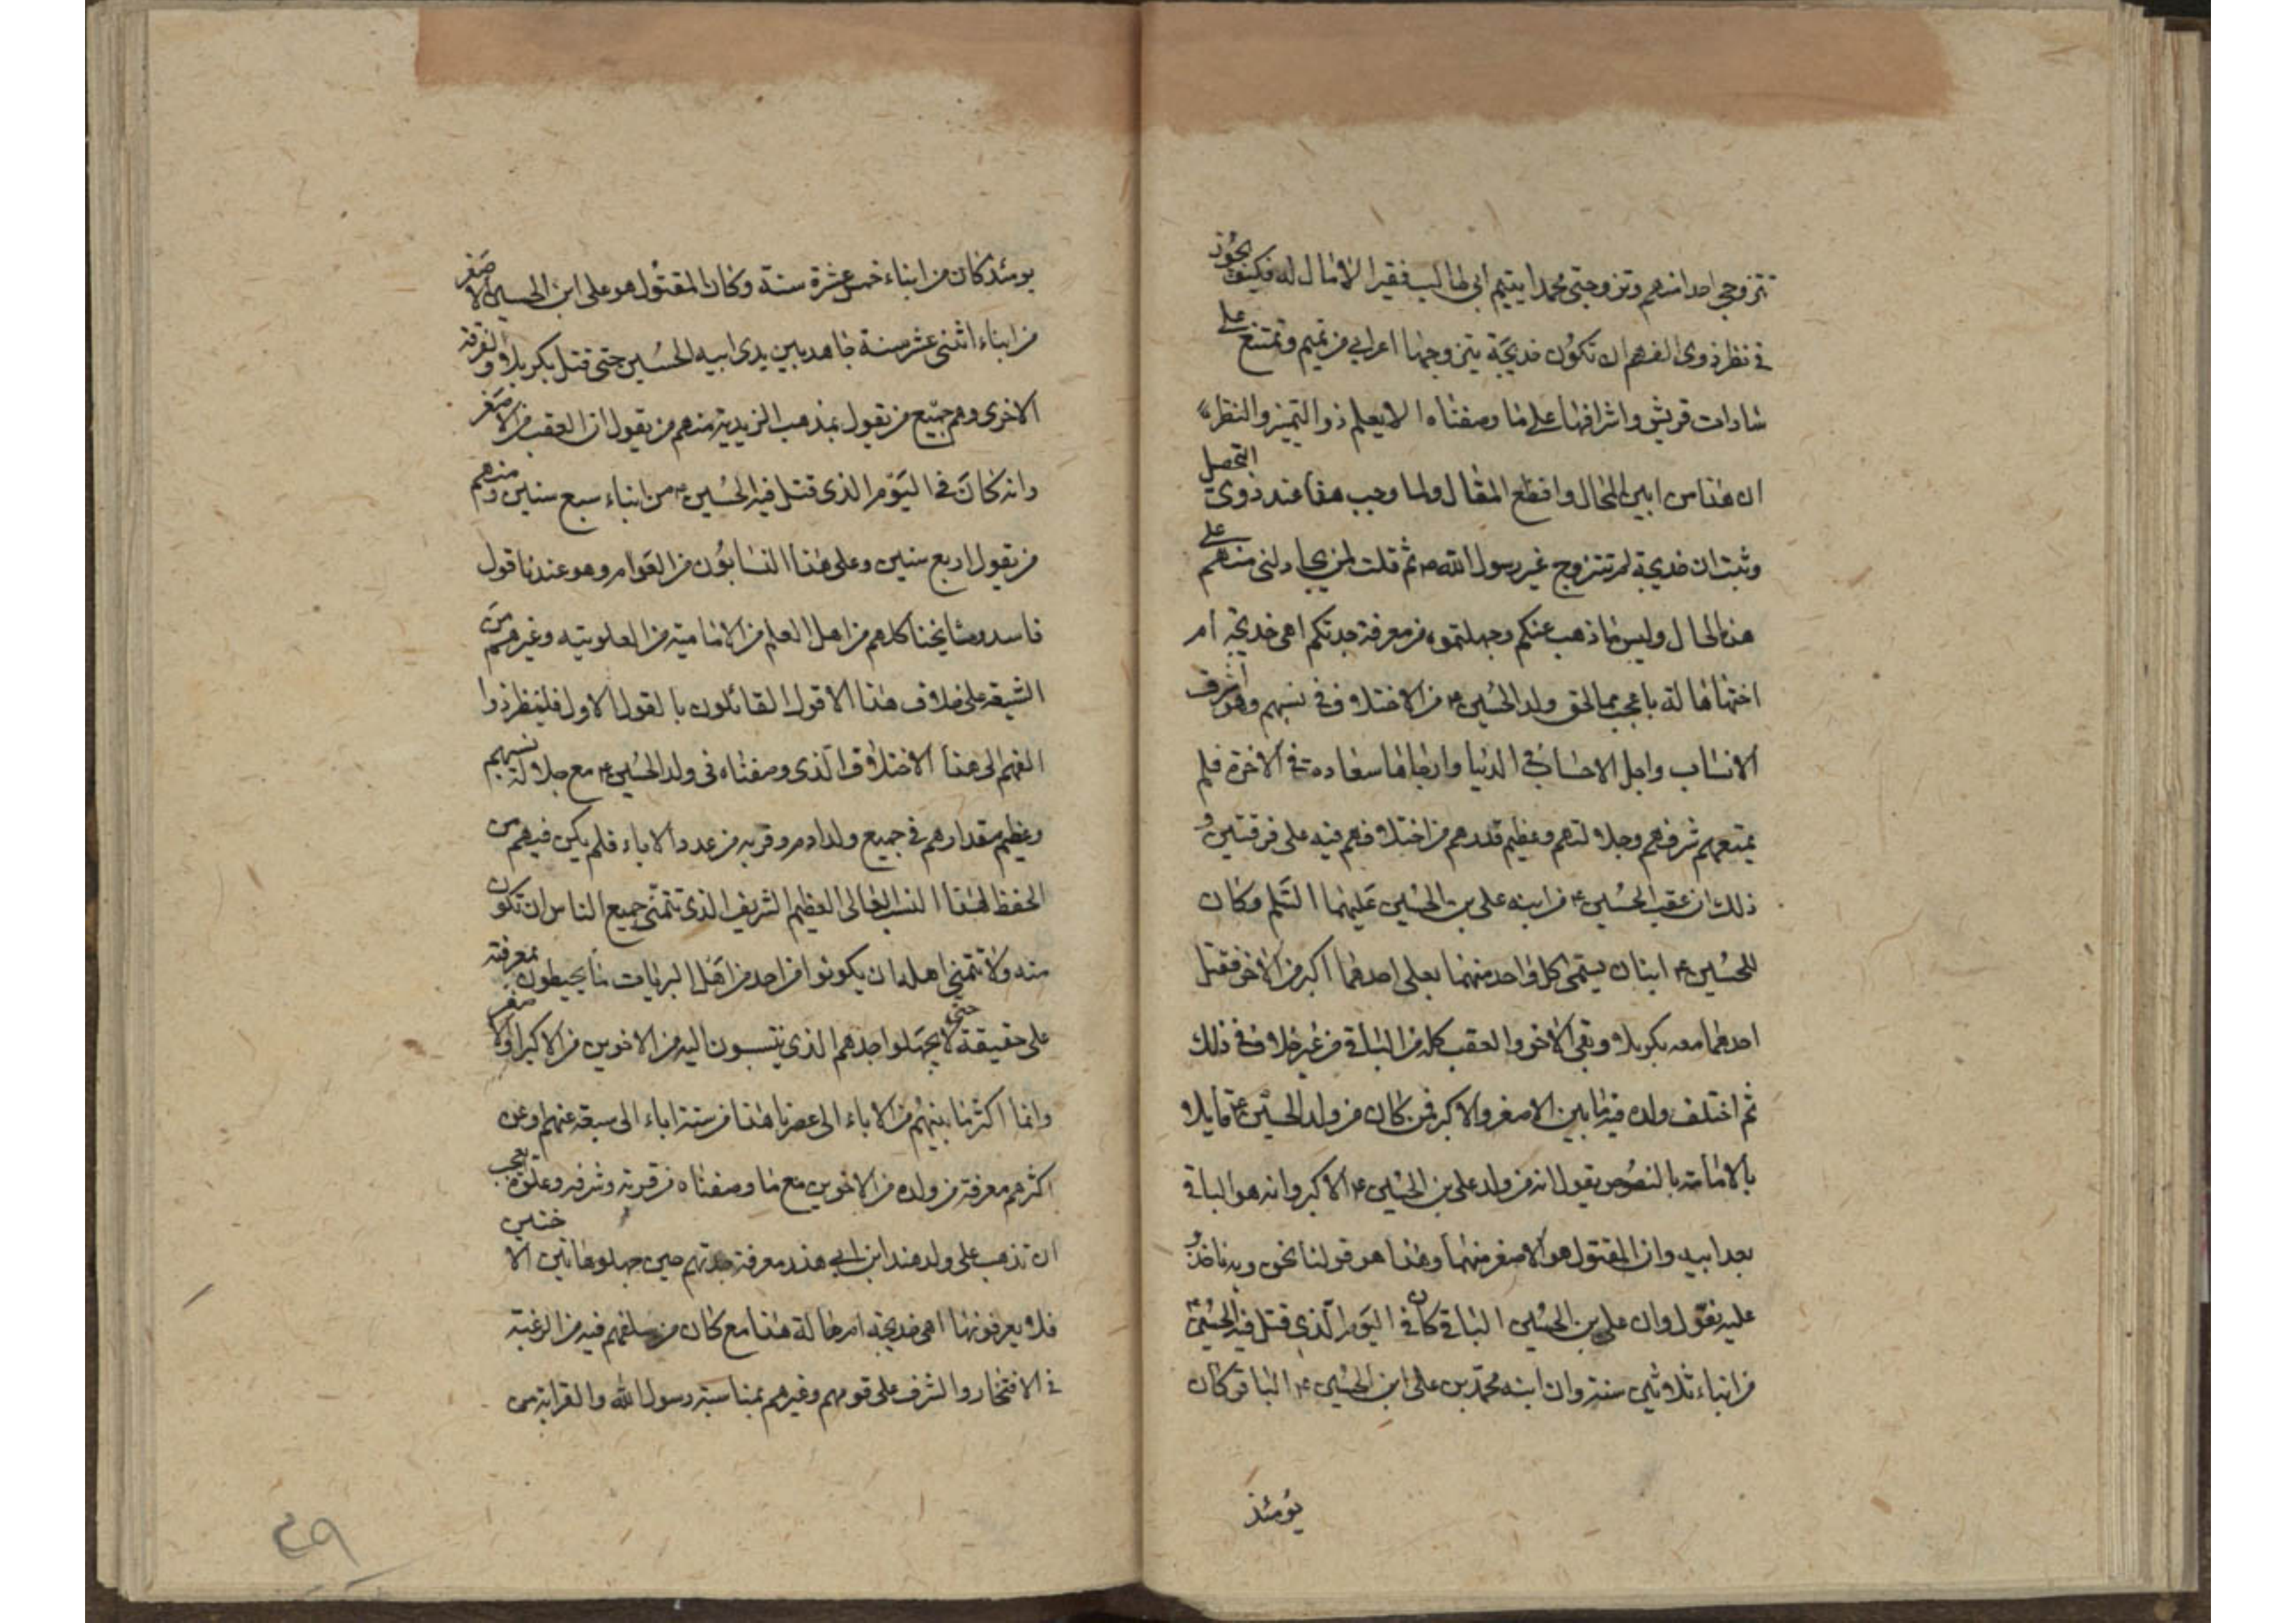 تتزوجي احدا منهم وتزوجتي محمدا يتيم ابي طالب فقيرا لا مال له فكيف يجوز
في نظر ذوي الفهم ان تكون خديجة يتزوجها اعرابي من تميم وتمتنع على
سادات قريش واشرافها على ما وصفناه الا يعلم ذو التميز والنظر
ان هذا من ابين المحال وافظع المقال ولما وجب هذا عند ذوي التحصيل
وثبت ان خديجة لم تتزوج غير رسول الله ص ثم قلت لمن يجادلني منهم على
هذا الحال وليس ما ذهب عنكم وجهلتموه من معرفة جدتكم اهي خديجة أم
اختها هالة باعجب مما لحق ولد الحسين ع من الاختلاف في نسبهم وهو اشرف
الانساب واجل الاحساب في الدنيا وارجاها سعادة في الاخرة فلم
يمنعهم شرفهم وجلالتهم وعظيم قدرهم من اختلافهم فيه على فرقتين و
ذلك ان عقب الحسين ع من ابنه علي بن الحسين عليهما السلم وكان
للحسين ع ابنان يسمى كل واحد منهما بعلي احدهما اكبر من الاخر فقتل
احدهما معه بكربلا وبقي الاخر والعقب كله من الباقي من غير خلاف في ذلك
ثم اختلف ولده فيما بين الاصغر والاكبر فمن كان من ولد الحسين ع قايلا
بالامامة بالنصوص يقول انه من ولد علي بن الحسين ع الاكبر وانه هو الباقي
بعد ابيه وان المقتول هو الاصغر منهما وهذا هو قولنا نحن وبه ناخذ و
عليه نعول وان علي بن الحسين الباقي كان في اليوم الذي قتل فيه الحسين ع
من ابناء ثلاثين سنة وان ابنه محمد بن علي ابن الحسين ع الباقر كان
يومئذ
يومئذ كان من ابناء خمس عشرة سنة وكان المقتول هو علي ابن الحسين الاصغر
من ابناء اثنى عشر سنة جاهد بين يدي ابيه الحسين حتى قتل بكربلا والفرقة
الاخرى وهم جميع من يقول بمذهب الزيدية منهم من يقول ان العقب من الاصغر
وانه كان في اليوم الذي قتل فيه الحسين ع من ابناء سبع سنين ومنهم
من يقول اربع سنين وعلى هذا النسابون من العوام وهو عندنا قول
فاسد ومشايخنا كلهم من اهل العلم من الامامية من العلوية وغيرهم من
الشيعة على خلاف هذا الاقول القائلون بالقول الاول فلينظر ذوا
الفهم الى هذا الاختلاف الذي وصفناه في ولد الحسين ع مع جلالة نسبهم
وعظيم مقدارهم في جميع ولد ادم وقربه من عدد الاباء فلم يكن فيهم من
الحفظ لهذا النسب العالي العظيم الشريف الذي تتمنى جميع الناس ان تكون
منه ولا تتمنى اهله ان يكونوا من احد من اهل البريات ما يحيطون بمعرفته
على حقيقة حتى لا يجهلوا جدهم الذي ينتسبون اليه من الاخوين من الاكبر او الاصغر
وانما اكثر ما بينهم من الاباء الى عصرنا هذا من ستة اباء الى سبعة عنهم وعن
اكثرهم معرفة من ولده من الاخوين مع ما وصفناه من قربه وشرفه وعلوه يعجب
ان تذهب على ولد هند ابن ابي هند معرفة جدتهم حين جهلوها تين الا ختين
فلا يعرفونها اهي خديجة ام هالة هذا مع كان من سلفهم فيه من الرغبة
في الافتخار والشرف على قومهم وغيرهم بمناسبة رسول الله والقرابة من